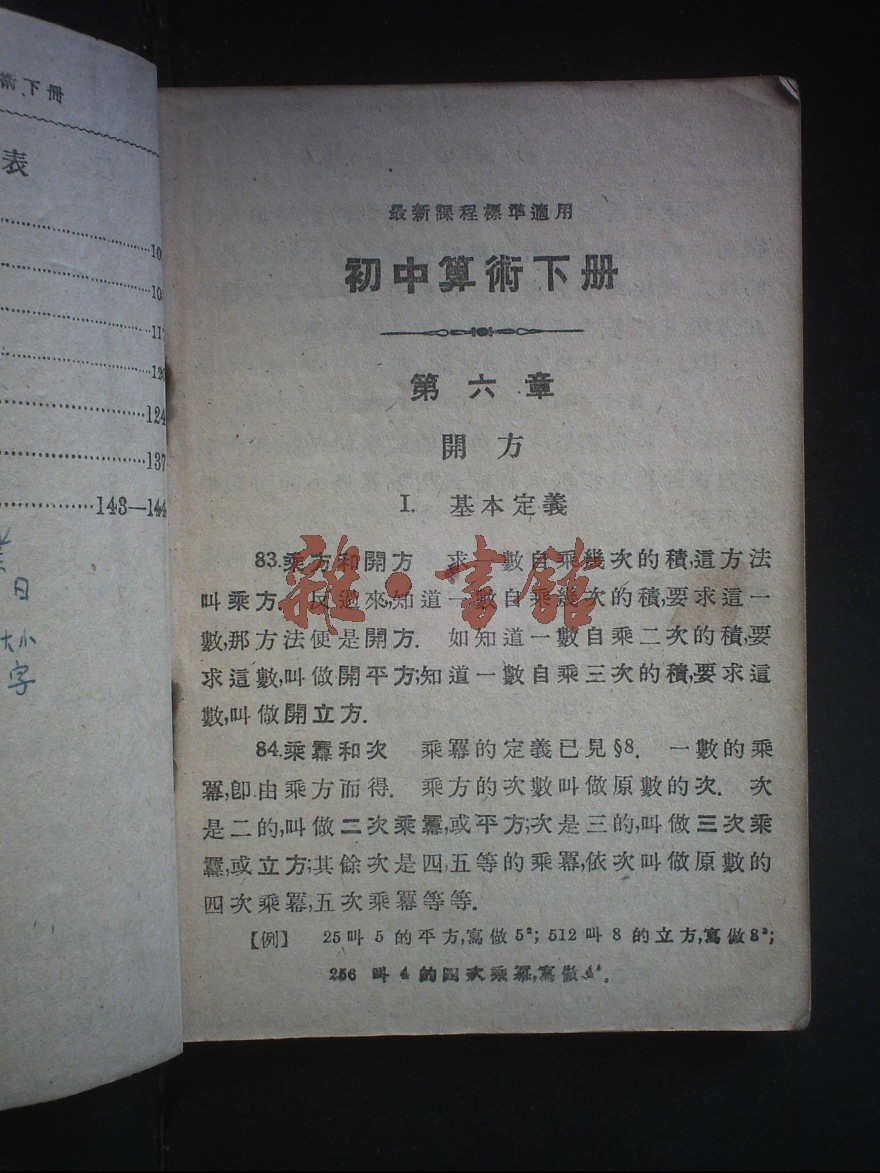 術下冊
表
124
137
143—144
日
大小
字
最新課程標準適用
初中算術下册
第六章
開方
I. 基本定義
83.乘方和開方 求一數自乘幾次的積,這方法
叫乘方. 反過來,知道一數自乘幾次的積,要求這一
數,那方法便是開方. 如知道一數自乘二次的積,要
求這數,叫做開平方;知道一數自乘三次的積,要求這
數,叫做開立方.
84.乘羃和次 乘羃的定義已見§8. 一數的乘
羃,卽由乘方而得. 乘方的次數叫做原數的次. 次
是二的,叫做二次乘羃,或平方;次是三的,叫做三次乘
羃,或立方;其餘次是四,五等的乘羃,依次叫做原數的
四次乘羃,五次乘羃等等.
【例】 25叫5的平方,寫做5²; 512叫8的立方,寫做8³;
256叫4的四次乘羃,寫做4⁴.
雜·書館